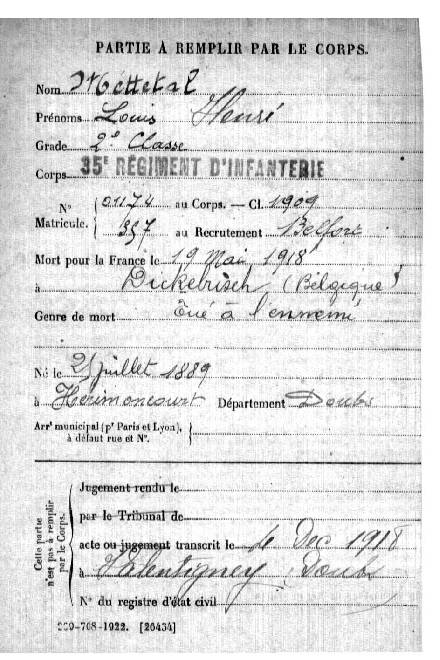 PARTIE À REMPLIR PAR LE CORPS.
Nom Mettetal
Prénoms Louis Henri
Grade 2e Classe
Corps 35E RÉGIMENT D'INFANTERIE
N° Matricule. { 01174 au Corps. — Cl. 1909
357 au Recrutement Belfort
Mort pour la France le 19 Mai 1918
à Dickebusch (Belgique)
Genre de mort Tué à l'ennemi
Né le juillet 1889
à Hérimoncourt Département Doubs
Arrt municipal (pr Paris et Lyon),
à défaut rue et N°.
Cette partie n'est pas à remplir par le Corps.
Jugement rendu le
par le Tribunal de
acte ou jugement transcrit le Dec 1918
à Valentigney Doubs
N° du registre d'état civil
-708-1922. [26434]